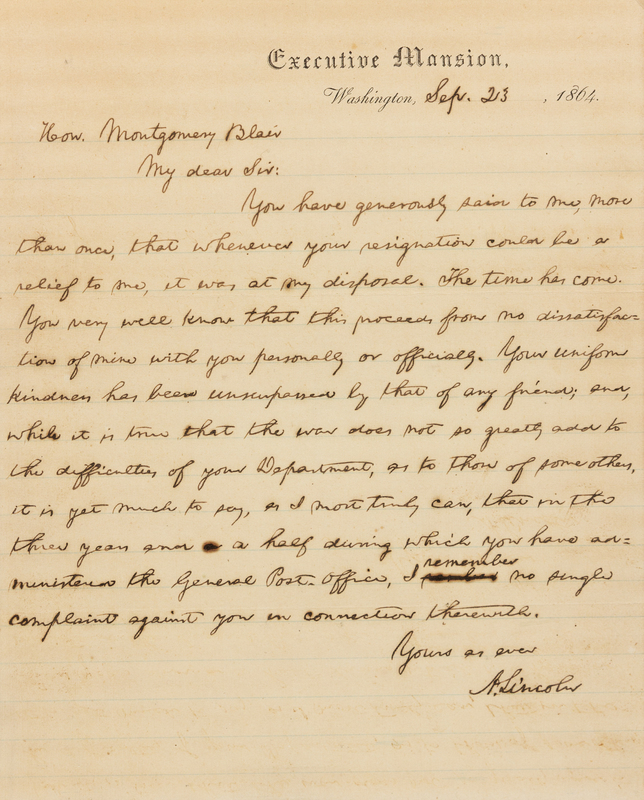 Executive Mansion,
Washington, Sep. 23, 1864.
Hon. Montgomery Blair
My dear Sir:
You have generously said to me, more
than once, that whenever your resignation could be a
relief to me, it was at my disposal. The time has come.
You very well know that this proceeds from no dissatisfac-
tion of mine with you personally or officially. Your uniform
kindness has been unsurpassed by that of any friend; and,
while it is true that the war does not so greatly add to
the difficulties of your Department, as to those of some others,
it is yet much to say, as I most truly can, that in the
three years and a half during which you have ad-
ministered the General Post-Office, I remember no single
complaint against you in connection therewith.
Yours as ever
A. Lincoln